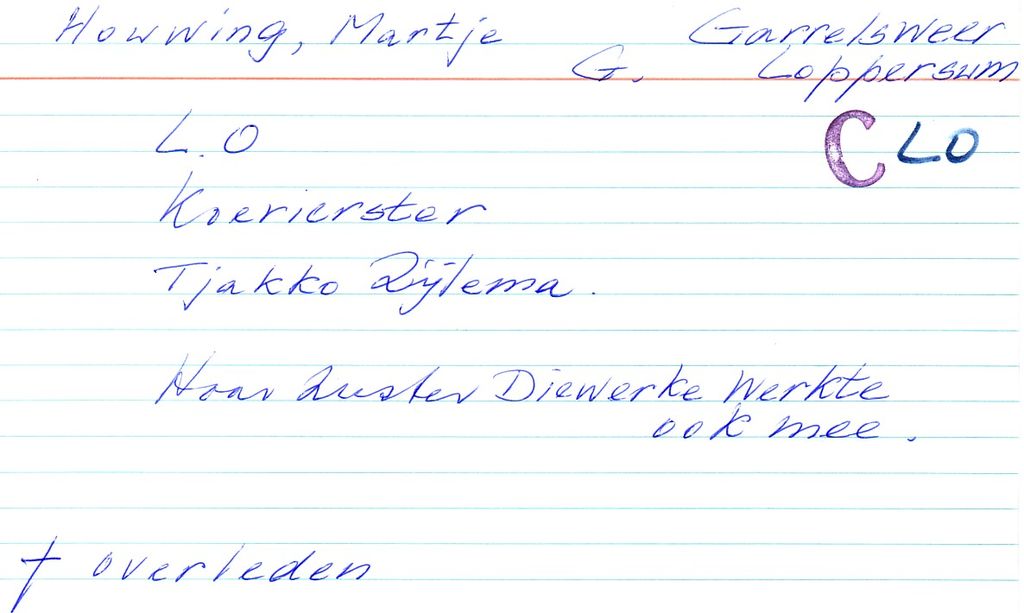 Howwing, Martje Garrelsweer
G. Loppersum
C LO
L.O
Koerierster
Tjakko Zijlema.
Haar zuster Diewerke werkte
ook mee.
† overleden